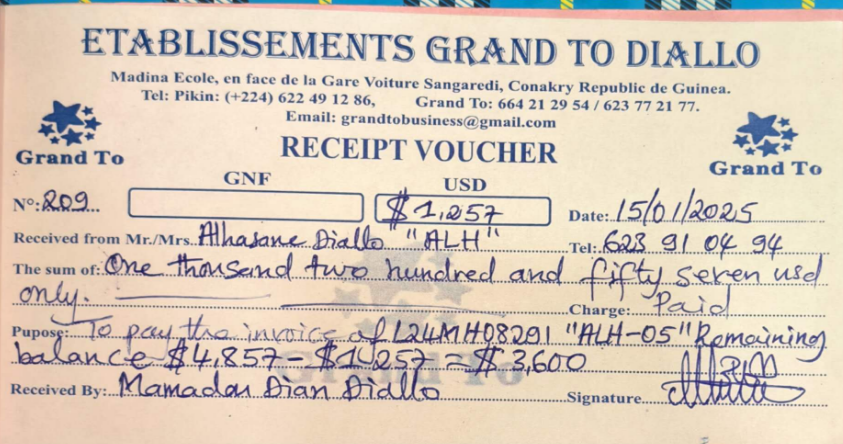 ETABLISSEMENTS GRAND TO DIALLO
Madina Ecole, en face de la Gare Voiture Sangaredi, Conakry Republic de Guinea.
Tel: Pikin: (+224) 622 49 12 86, Grand To: 664 21 29 54 / 623 77 21 77.
Email: grandtobusiness@gmail.com
Grand To RECEIPT VOUCHER Grand To
GNF USD
N°: 209 $1,257 Date: 15/01/2025
Received from Mr./Mrs. Alhasane Diallo "ALH" Tel: 623 91 04 94
The sum of: One thousand two hundred and fifty seven usd
only. Charge: Paid
Pupose: To pay the invoice of L24MH08291 "ALH-05" Remaining
balance $4,857 - $1,257 = $3,600
Received By: Mamadou Dian Diallo Signature